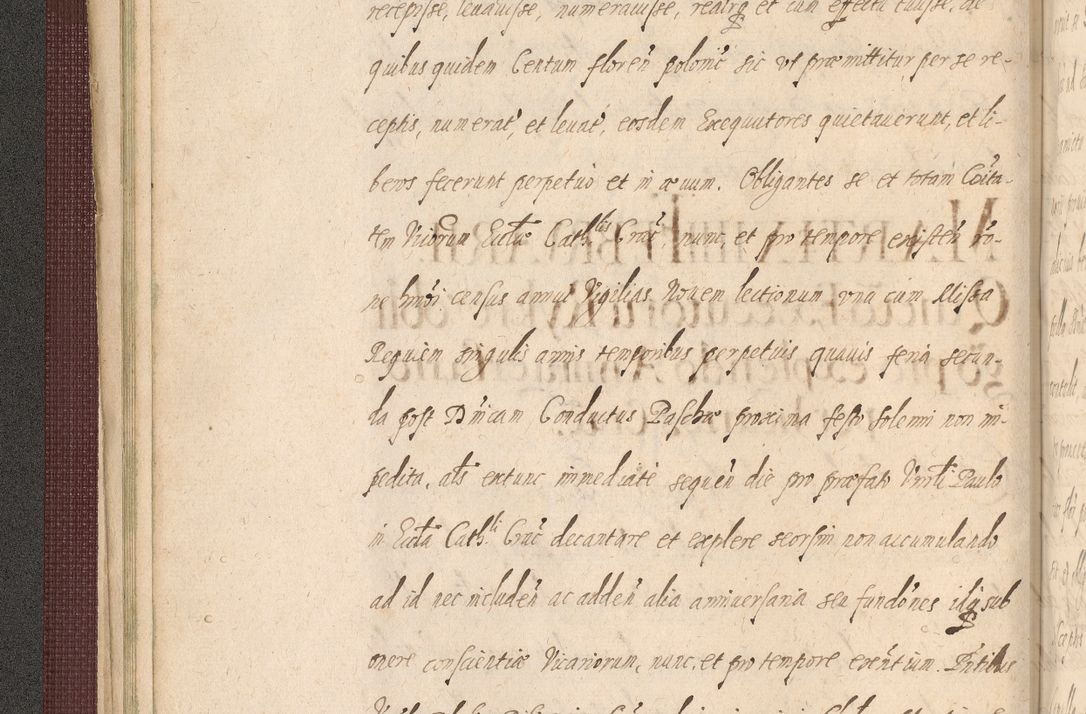 recepisse, levavisse, numeravisse, realrq et cum effectu tulisse, de
quibus quidem Centum floreñ poloniĉ sic ut præmittitur per se re-
ceptis, numerat', et levat', eosdem Exequutores quietaverunt, et li-
beros fecerunt perpetuò et in ævum. Obligantes se et totam Coĩta-
tem Vicõrum Eccłiæ Cath:lis Crač, nunc, et pro tempore existeñ rõ-
ne hmõi census annui Vigilias Novem lectionum una cum Missa
Requiem singulis annis temporibus perpetuis quavis feria secun-
da post Dñicam Conductus Paschæ proxima festo solenni non im-
pedita, als extunc immediatè sequeñ die pro præfato Paulo
in Eccła Cath:li Crač decantare et explere seorsim non accumulando
ad id nec includeñ ac addeñ alia anniversaria seu fundõnes idq sub
onere conscientiæ Vicariorum, nunc, et pro tempore exeñtium. Pñtibus